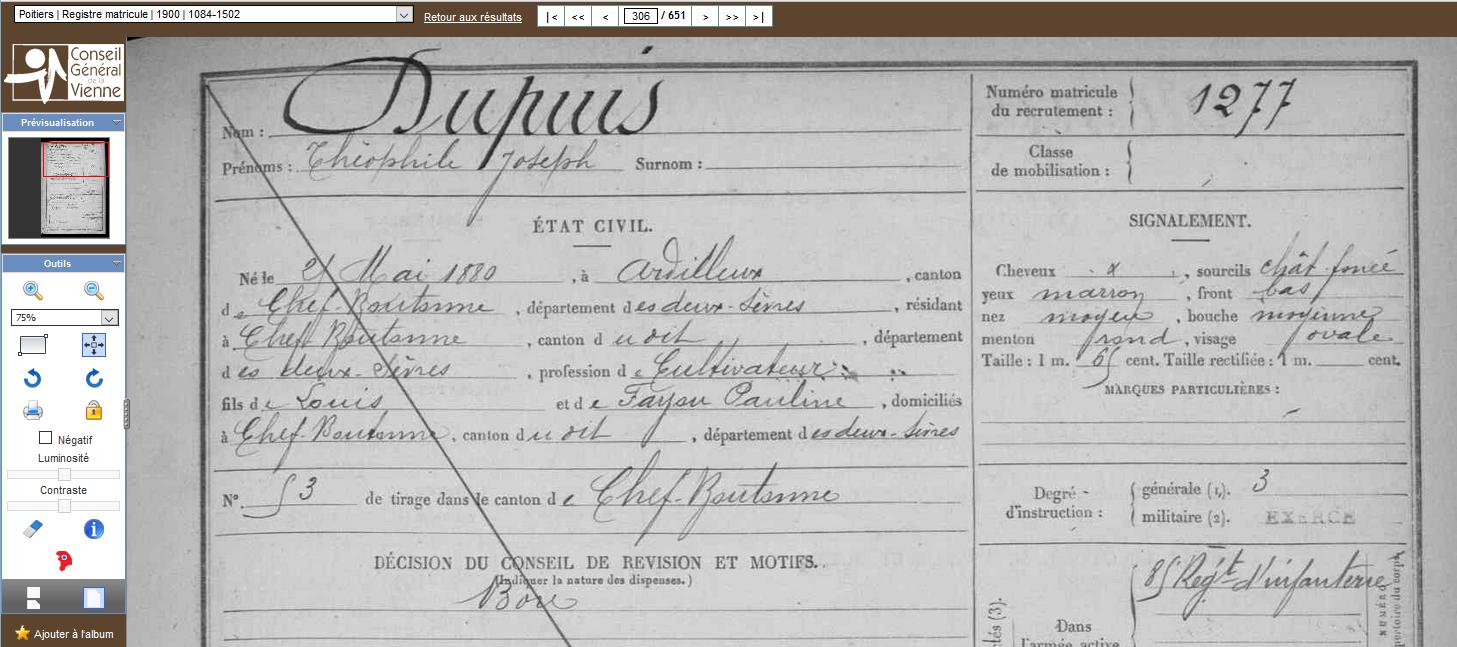 Poitiers | Registre matricule | 1900 | 1084-1502
Retour aux résultats
|< << < 306 / 651 > >> >|
Conseil
Général
de la
Vienne
Prévisualisation
Outils
75%
Négatif
Luminosité
Contraste
Ajouter à l'album
Nom : Dupuis
Prénoms : Théophile Joseph Surnom :
ÉTAT CIVIL.
Né le Mai 1880, à Ardilleux, canton
de Chef-Boutonne, département des deux-Sèvres, résidant
à Chef Boutonne, canton du dit, département
des deux-Sèvres, profession de Cultivateur
fils de Louis et de Fayou Pauline, domiciliés
à Chef-Boutonne, canton du dit, département des deux-Sèvres
N° 53 de tirage dans le canton de Chef-Boutonne
DÉCISION DU CONSEIL DE REVISION ET MOTIFS.
(Indiquer la nature des dispenses.)
Bon
Numéro matricule
du recrutement : 1277
Classe
de mobilisation :
SIGNALEMENT.
Cheveux, sourcils chât foncé
yeux marron, front bas
nez moyen, bouche moyenne
menton rond, visage ovale
Taille : 1 m. cent. Taille rectifiée : 1 m. cent.
MARQUES PARTICULIÈRES :
Degré
d'instruction :
générale (1). 3
militaire (2). EXERCÉ
Régt d'infanterie
Dans
l'armée active
NUMÉRO